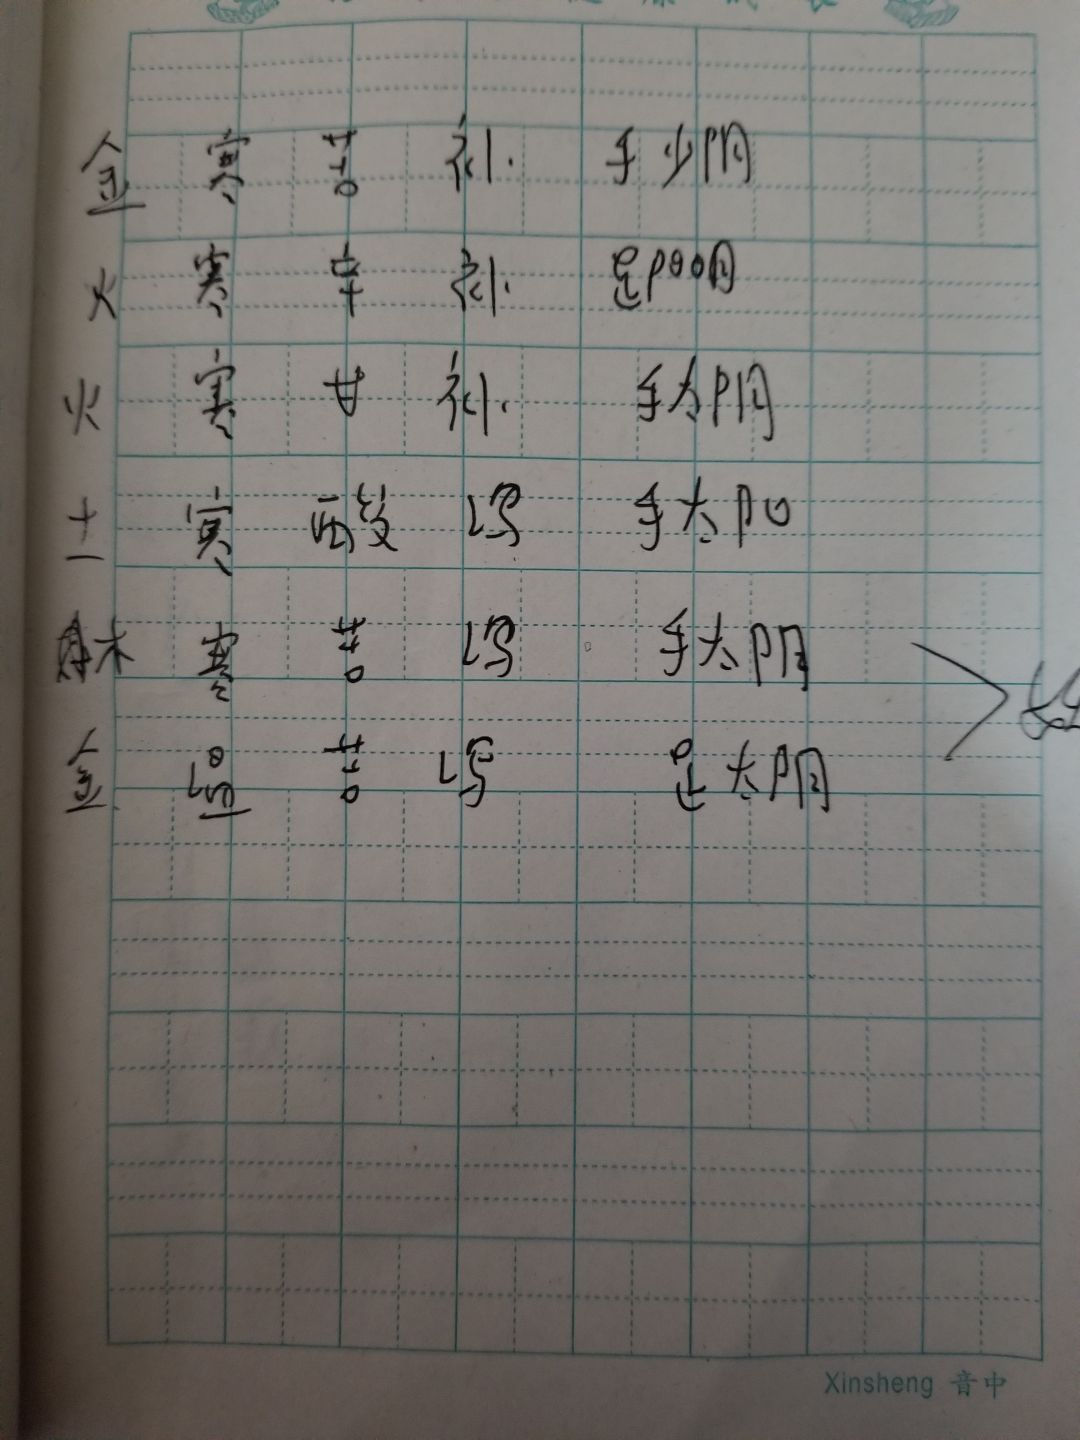 金 寒 苦 补. 手少阴
火 寒 辛 补. 足阳明
火 寒 甘 补. 手太阴
土 寒 酸 泻 手太阳
木 寒 苦 泻 手太阴
金 温 苦 泻 足太阴
Xinsheng 音中